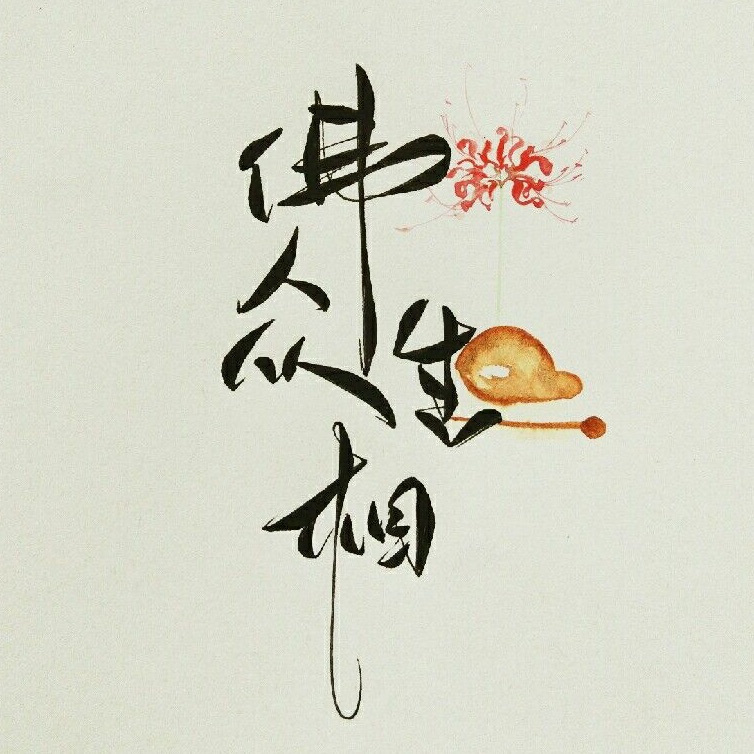 佛
众生
相